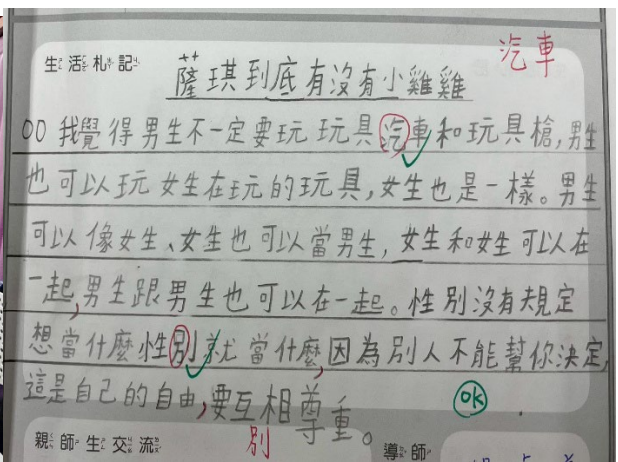 生活札記
汽車
薩琪到底有沒有小雞雞
00 我覺得男生不一定要玩玩具汽車和玩具槍,男生
也可以玩女生在玩的玩具,女生也是一樣。男生
可以像女生、女生也可以當男生,女生和女生可以在
一起,男生跟男生也可以在一起。性別沒有規定
想當什麼性別就當什麼,因為別人不能幫你決定,
這是自己的自由,要互相尊重。
OK
別
親師生交流
導師